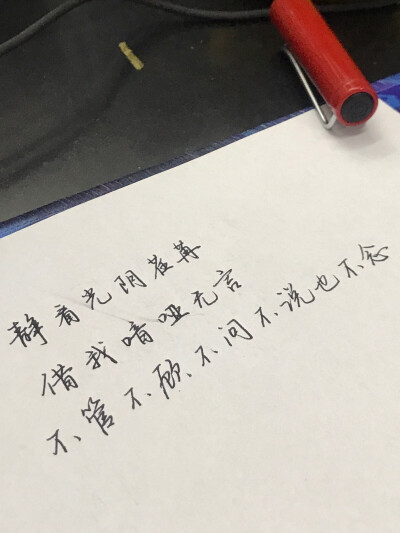 静看光阴荏苒
借我喑哑无言
不管不顾不问不说也不念